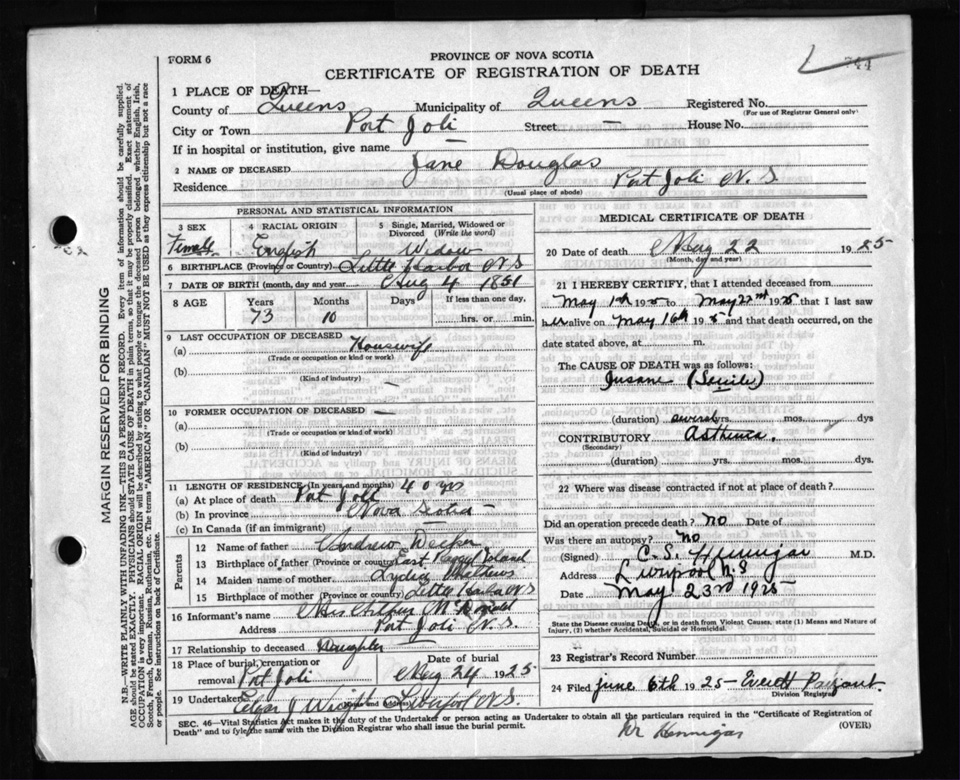 FORM 6
PROVINCE OF NOVA SCOTIA
CERTIFICATE OF REGISTRATION OF DEATH
744
1 PLACE OF DEATH—
County of Queens Municipality of Queens Registered No.
(For use of Registrar General only)
City or Town Port Joli Street — House No.
If in hospital or institution, give name —
2 NAME OF DECEASED Jane Douglas
Residence Port Joli N. S.
(Usual place of abode)
PERSONAL AND STATISTICAL INFORMATION
3 SEX 4 RACIAL ORIGIN 5 Single, Married, Widowed or Divorced (Write the word)
Female English Widow
6 BIRTHPLACE (Province or Country) Little Harbor N S
7 DATE OF BIRTH (month, day and year) Aug 4 1851
8 AGE Years Months Days If less than one day,
73 10 hrs. or min.
9 LAST OCCUPATION OF DECEASED
(a) Housewife
(Trade or occupation or kind or work)
(b) —
(Kind of industry)
10 FORMER OCCUPATION OF DECEASED —
(a)
(Trade or occupation or kind of work)
(b)
(Kind of industry)
11 LENGTH OF RESIDENCE (In years and months) 40 yrs
(a) At place of death Port Joli
(b) In province Nova Scotia
(c) In Canada (if an immigrant)
Parents
12 Name of father Andrew
13 Birthplace of father (Province or country) East
14 Maiden name of mother Lydia Mathews
15 Birthplace of mother (Province or country) Little Harbor NS
16 Informant's name Mrs McDonald
Address Port Joli N. S.
17 Relationship to deceased Daughter
18 Place of burial, cremation or removal Port Joli Date of burial May 24 1925
19 Undertaker Edgar J Wright Liverpool N.S.
MEDICAL CERTIFICATE OF DEATH
20 Date of death May 22 1925
(Month, day and year)
21 I HEREBY CERTIFY, that I attended deceased from
May 1st 1925 to May 22nd 1925 that I last saw
her alive on May 16th 1925 and that death occurred, on the
date stated above, at m.
The CAUSE OF DEATH was as follows:
Insane (Senile)
(duration) several yrs. mos. dys
CONTRIBUTORY
(Secondary)
(duration) yrs. mos. dys
22 Where was disease contracted if not at place of death?
Did an operation precede death? no Date of
Was there an autopsy? no
(Signed) C. S. Hennigar M.D.
Address Liverpool N.S
Date May 23rd 1925
State the Disease causing Death, or in death from Violent Causes, state (1) Means and Nature of Injury, (2) whether Accidental, Suicidal or Homicidal.
23 Registrar's Record Number
24 Filed June 6th 1925 Everett Payzant
Division Registrar
SEC. 46—Vital Statistics Act makes it the duty of the Undertaker or person acting as Undertaker to obtain all the particulars required in the "Certificate of Registration of
Death" and to file the same with the Division Registrar who shall issue the burial permit. (OVER)
Dr Hennigar
MARGIN RESERVED FOR BINDING
N.B.—WRITE PLAINLY WITH UNFADING INK—THIS IS A PERMANENT RECORD. Every item of information should be carefully supplied.
AGE should be stated EXACTLY. PHYSICIANS should STATE CAUSE OF DEATH in plain terms, so that it may be properly classified. Exact statement of
OCCUPATION is very important. RACIAL ORIGIN will be described by stating to what people or tongue the deceased person belonged whether English, Irish,
Scotch, French, German, Russian, Ruthenian, etc. The terms "AMERICAN" or "CANADIAN" MUST NOT BE USED as they express citizenship but not a race
or people. See instructions on back of Certificate.